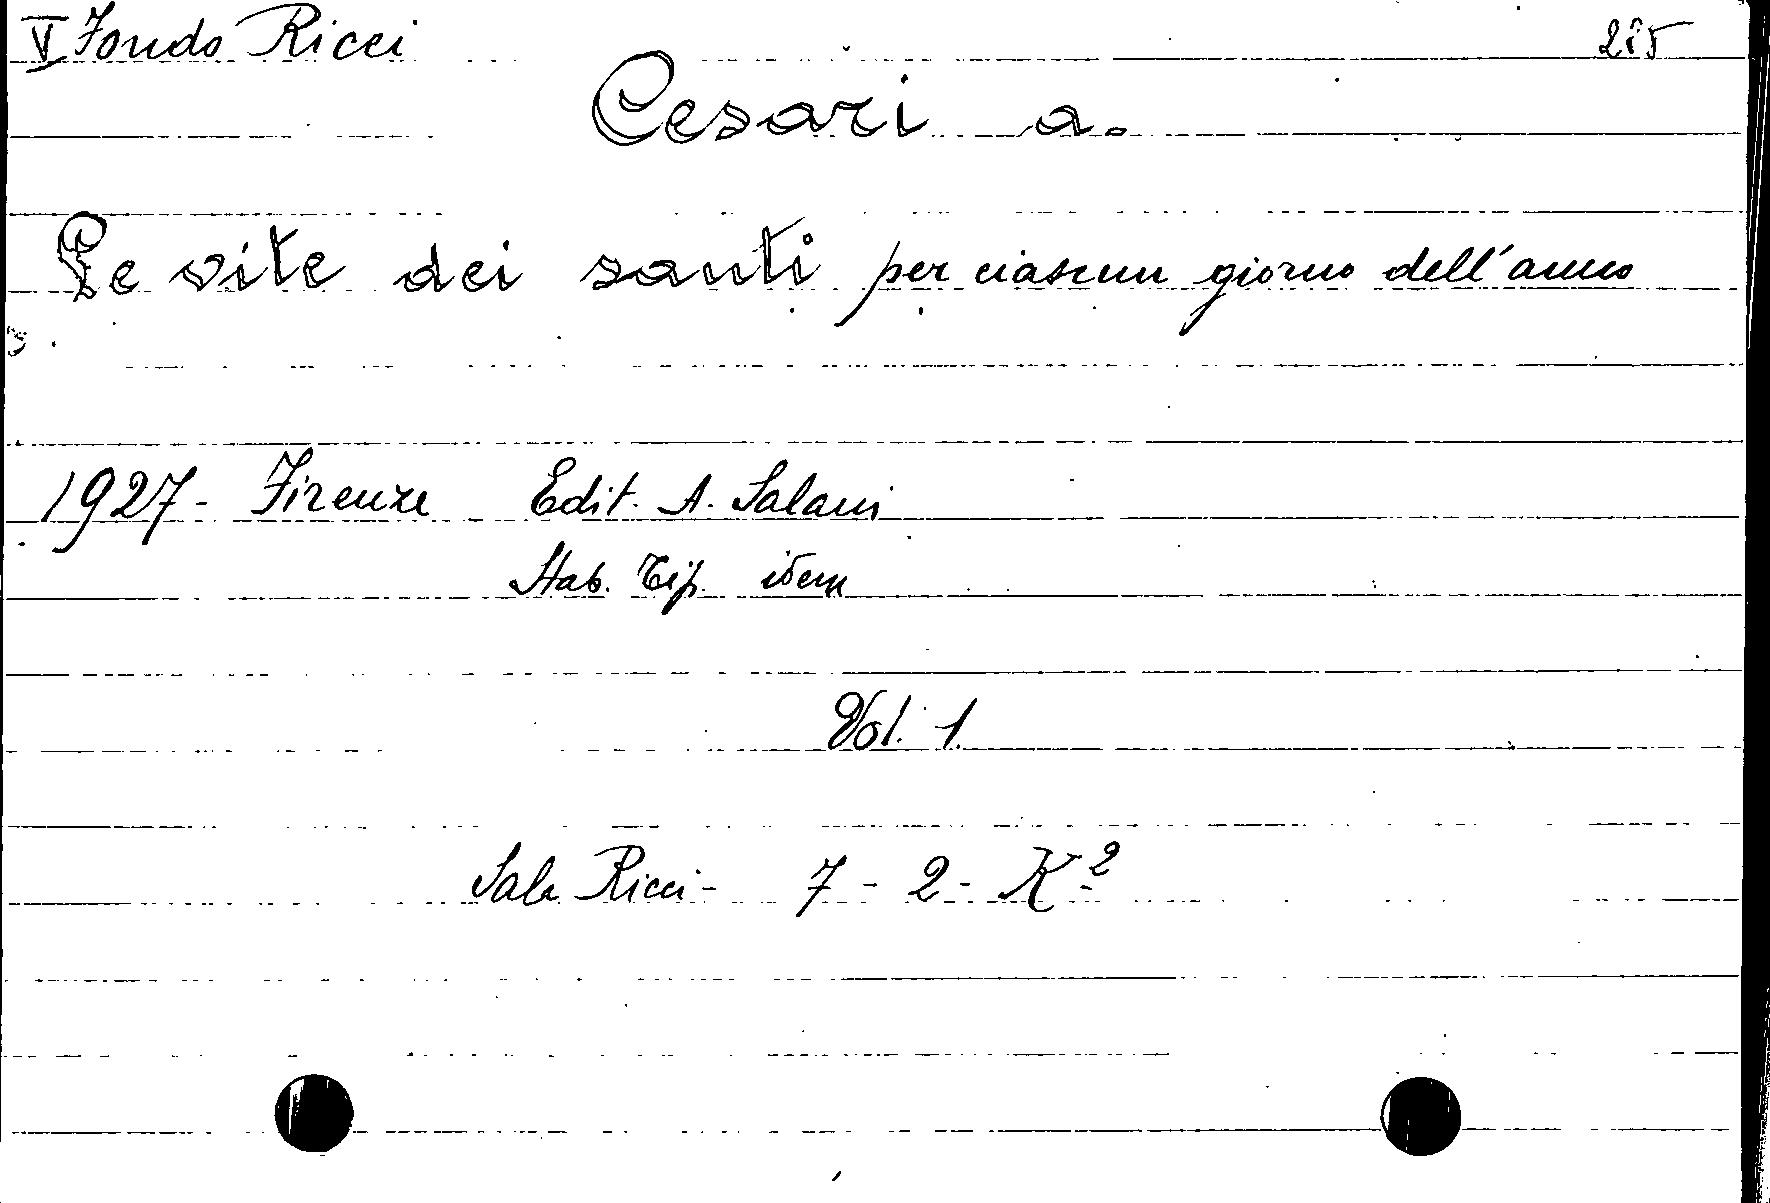 V Fondo Ricci 285
Cesari a.
Le vite dei santi per ciascun giorno dell'anno
1927 - Firenze Edit. A. Salani
Stab. Tip. idem
Vol. 1.
Sala Ricci - 7 - 2 - K²